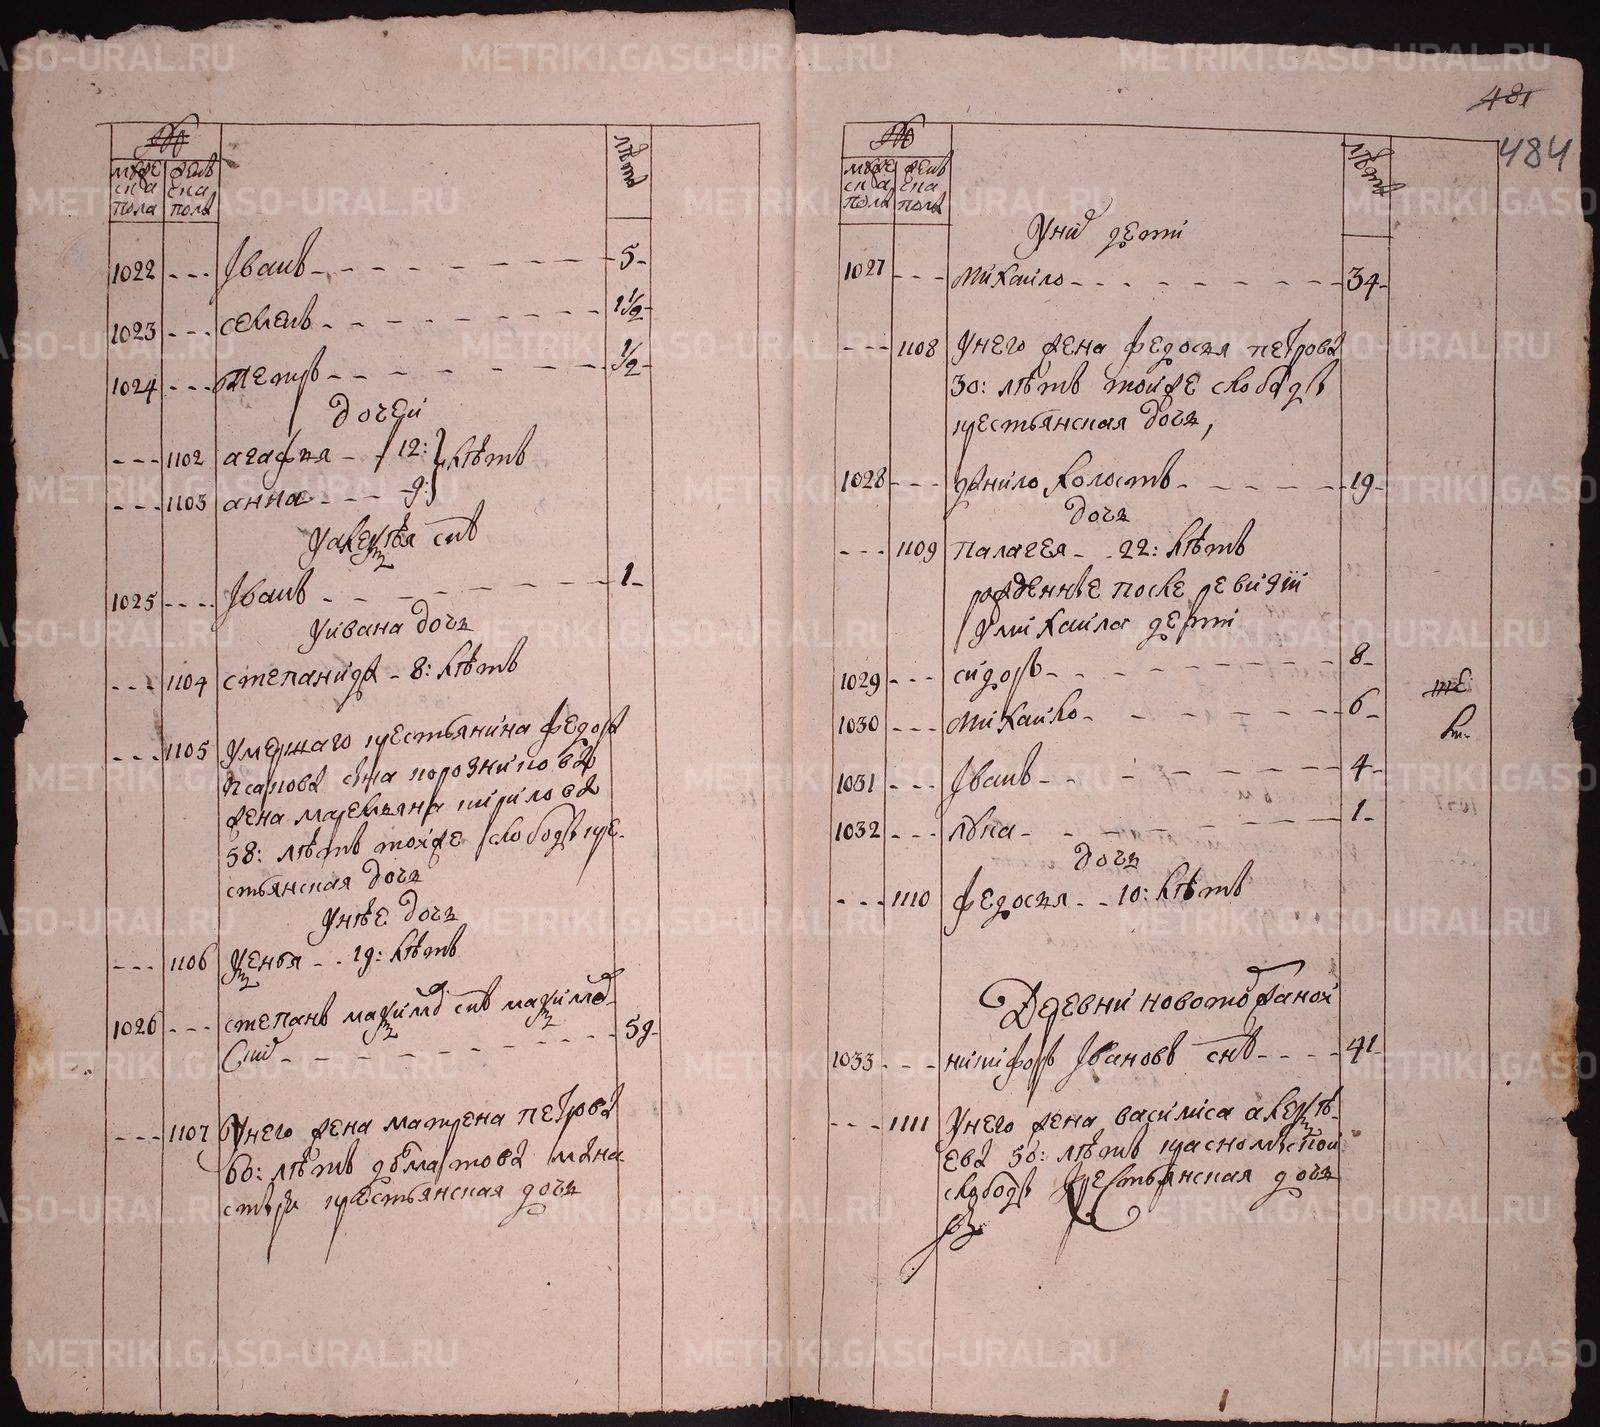 №
муже
ска
пола
женс
ска
пола
лѣта
1022 --- Іванъ 5
1023 --- семенъ 1 1/2
1024 --- петръ 1/2
дочери
--- 1102 агафья 12: лѣтъ
--- 1103 анна 9:
У алексѣя снъ
1025 --- Іванъ 1
У ивана дочь
--- 1104 степанида 8: лѣтъ
--- 1105 Умершаго крестьянина федора
сна
жена маремьяна кирилова
58: лѣтъ тойже слободы кре-
стьянская дочь
У нѣе дочь
--- 1106 Ксенья 19: лѣтъ
1026 --- степанъ максимо снъ максимо-
вых 59
--- 1107 У него жена матрена петрова
60: лѣтъ далматова мана-
стыря крестьянская дочь
481
484
№
муже
ска
пола
женс
ска
пола
лѣта
У них дети
1027 --- михаило 34
--- 1108 У него жена федосья петрова
30: лѣтъ тойже слободы
крестьянская дочь,
1028 --- данило холостъ 19
дочь
--- 1109 палагея 22: лѣтъ
рожденные после ревизіи
У михаила дети
1029 --- сидоръ 8
1030 --- михаило 6
1031 --- Іванъ 4
1032 --- лука 1
дочь
--- 1110 федосья 10: лѣтъ
Деревни новотображной
1033 --- никифоръ Івановъ снъ 41
--- 1111 У него жена василиса алексѣ-
ева 50: лѣтъ красномыской
слободы крестьянская дочь